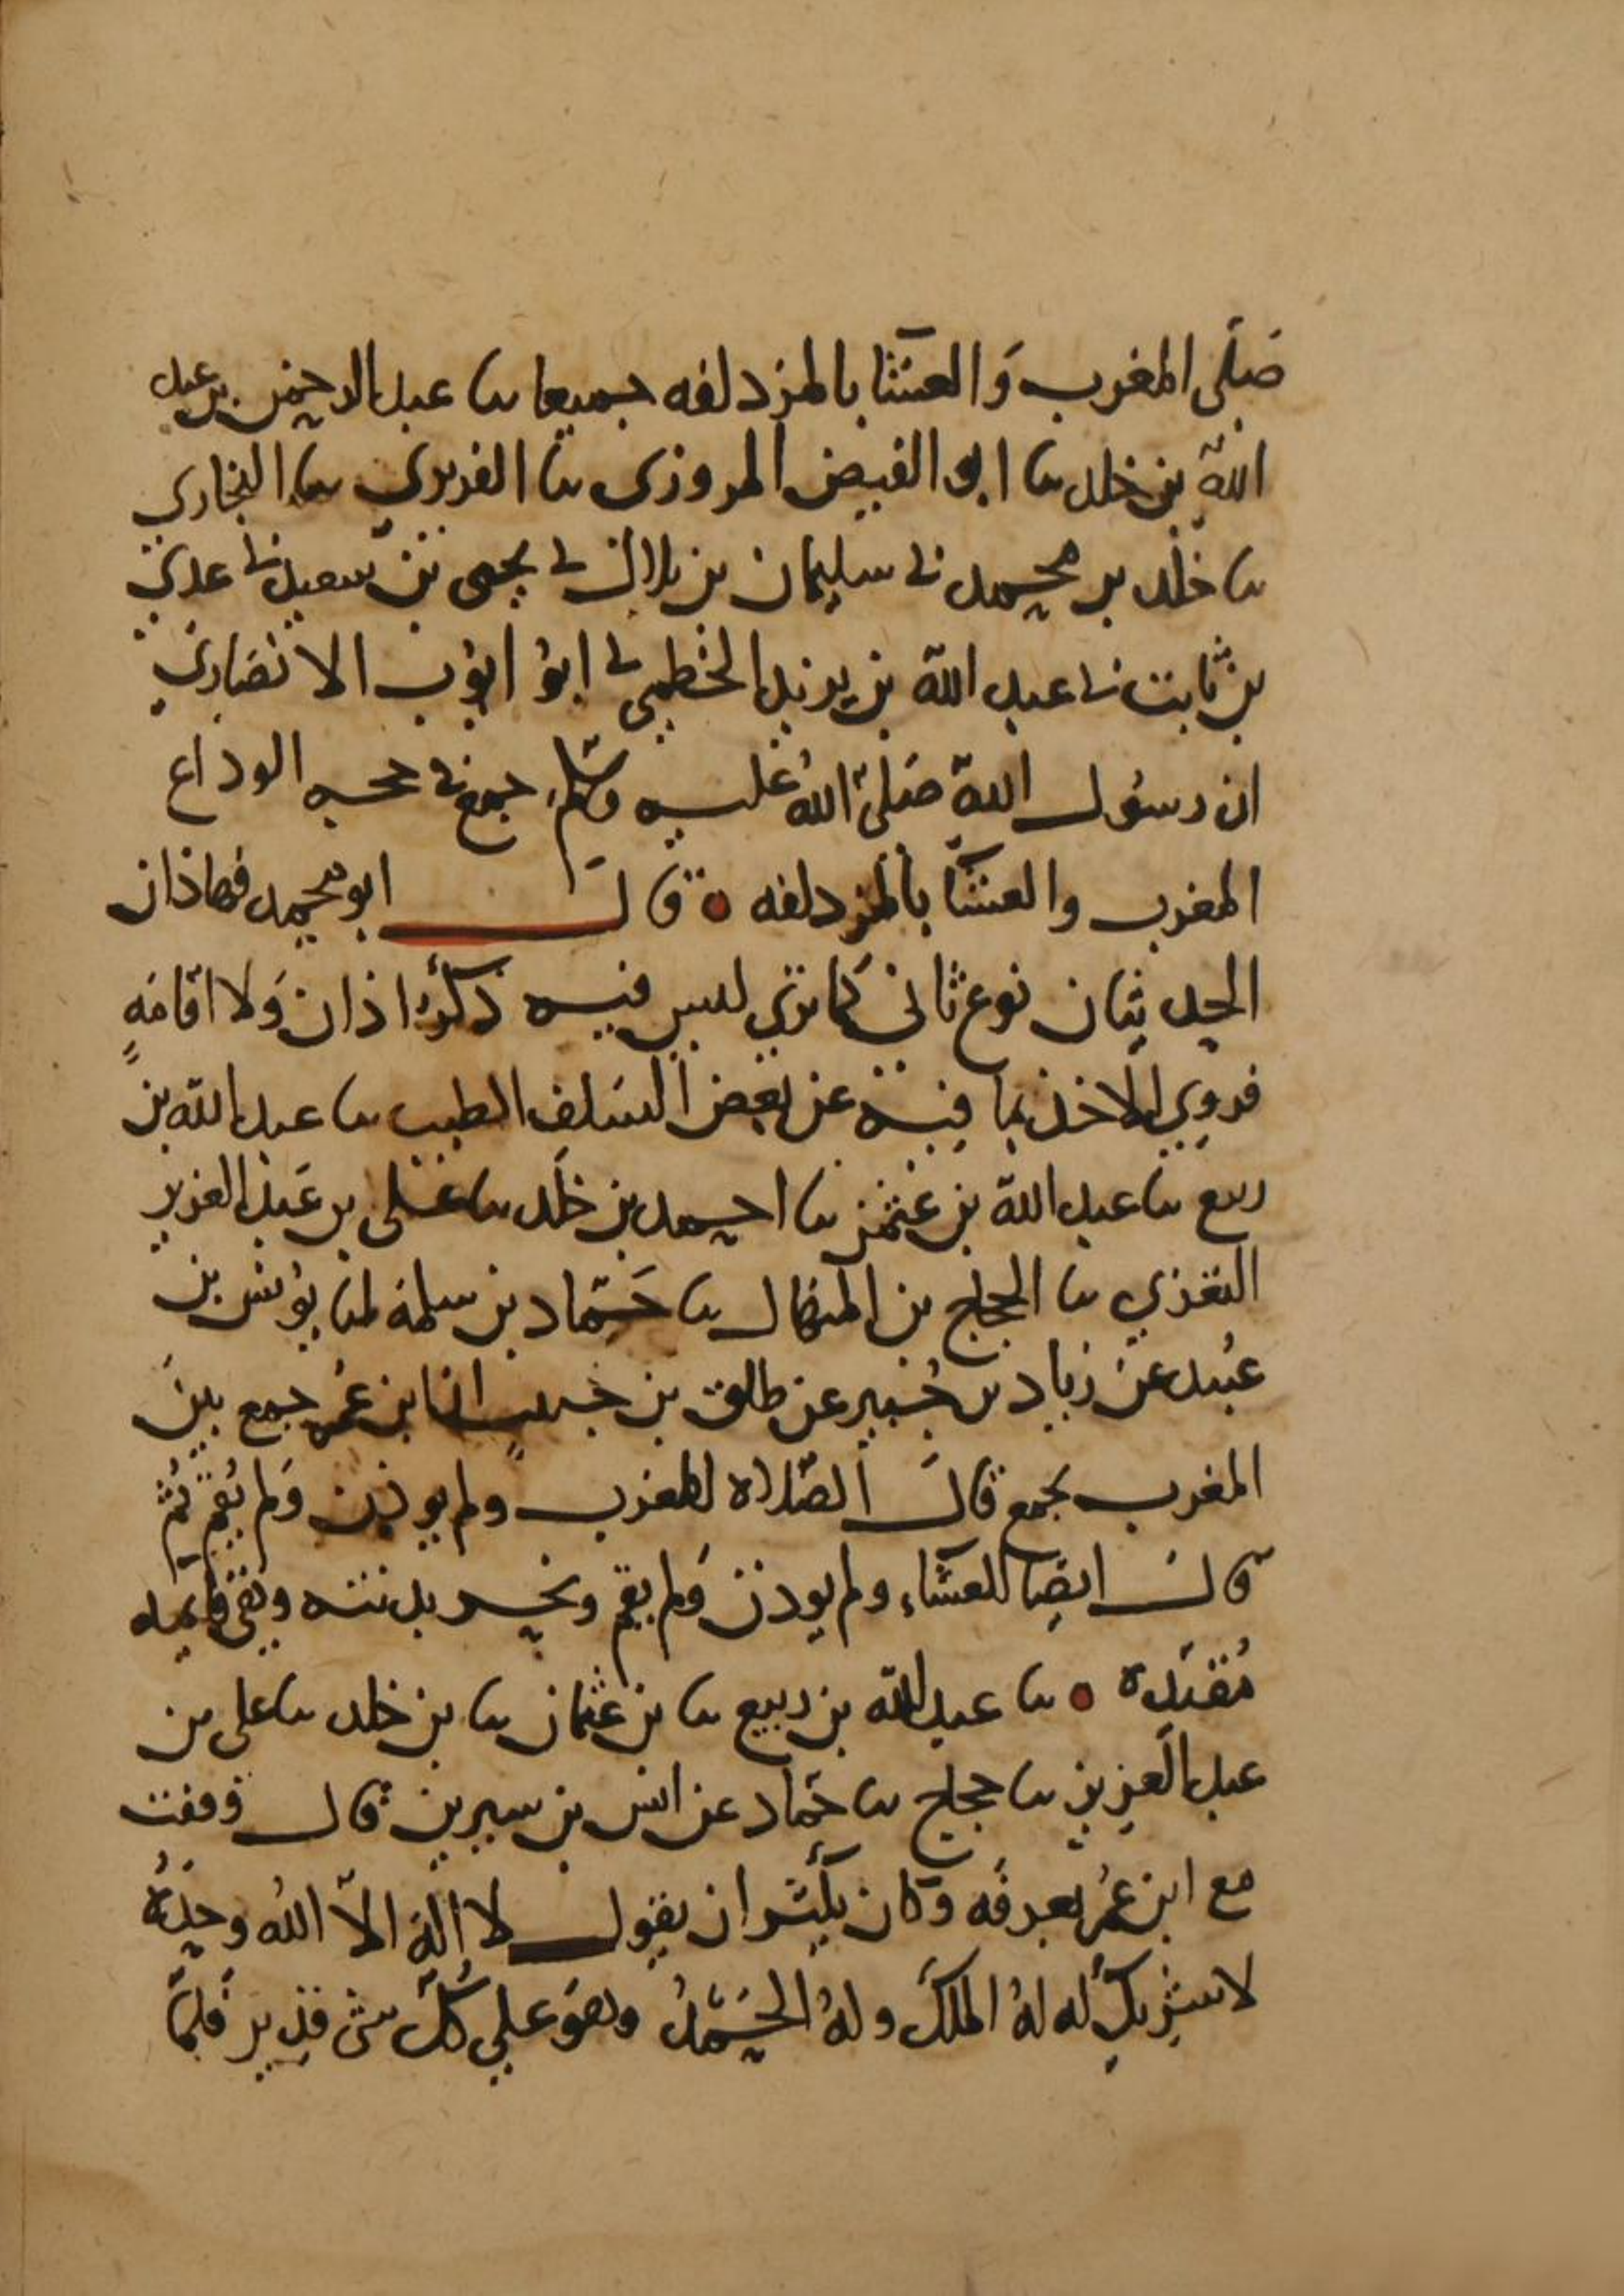 صَلّى المغرب وَالعشآ بالمزدلفه جميعا ثنا عبد الرحمٰن بن عبد
اللّه بن خلد ثنا ابو الفيض المروزى ثنا الفربري ثنا البخاري
ثنا خلد بن محمد ني سليمان بن بلال ني يحيى بن سعيد ني عدي
بن ثابت ني عبد اللّه بن يزيد الخطمي ني ابوُ ايوُب الانصَاري
ان رسوُل اللّه صَلىّ اللّهُ عليه وسّلم جمع في حجه الوداع
المغرب والعشآ بالمزدلفه ٥ قال ابو محمد فهاذان
الحديثان نوع ثاني كما تري ليس فيه ذكرُ اذان وَلا اقامَهٍ
فروي الاخذ بما فيه عن بعض السَلف الطيب ثنا عبد اللّه بن
ربيع ثنا عبد اللّه بن عثمٰن ثنا احمد بن خلد ثنا علي بن عَبد العزيز
البغذي ثنا الحجاج بن المنهال ثنا حَمّاد بن سلمة انا يوُنس بن
عُبيد عن زياد بن جُبير عن طلق بن حبيب ان ابن عُمر جمع بينَ
المغرب بجمع قال الصّلاه للمغرب ولم يوذن وَلم يُقم ثُم
قال ايضا للعشآء ولم يوذن وَلم يقم ونحر بدنته وهي قايمه
مُقيّده ٥ ثنا عبد اللّه بن ربيع ثنا بن عثمان ثنا بن خلد ثنا علي بن
عبد العزيز ثنا حجاج ثنا حمّاد عن انس بن سيرين قال وقفت
مع ابن عُمر بعرفَه وَكان يكثر ان يقول لا الٰه الاّ اللّهُ وحدَهُ
لا شريكَ له لهُ الملكَ ولهُ الحَمْدُ وهوَ علي كل شى قدير فَلمّا